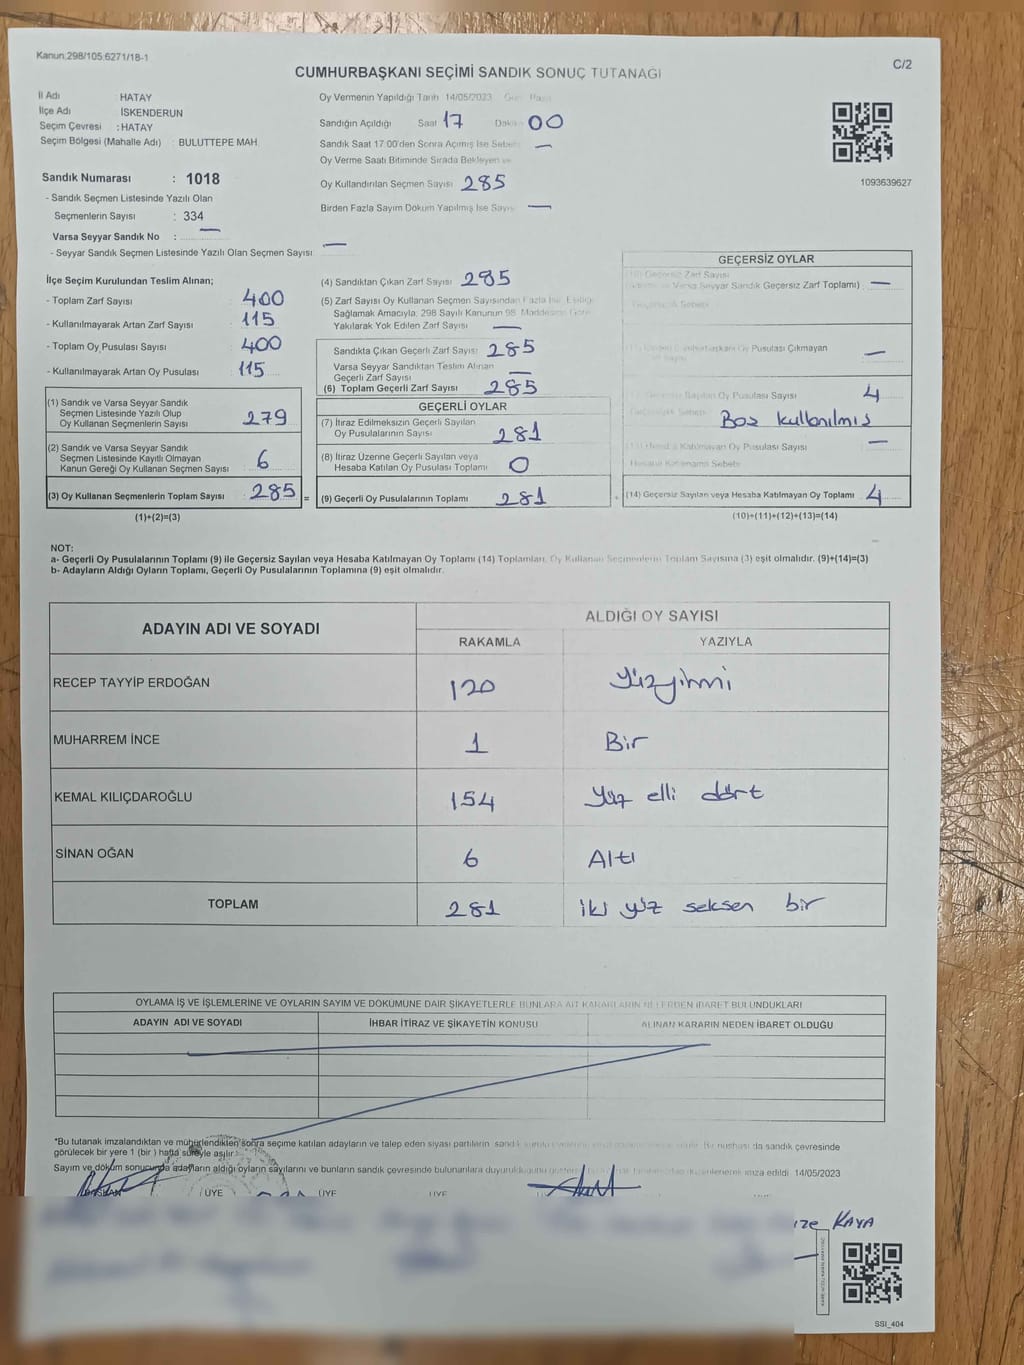 Kanun:298/105 6271/18-1
C/2
CUMHURBAŞKANI SEÇİMİ SANDIK SONUÇ TUTANAĞI
İl Adı HATAY
İlçe Adı İSKENDERUN
Seçim Çevresi : HATAY
Seçim Bölgesi (Mahalle Adı) : BULUTTEPE MAH.
Sandık Numarası : 1018
- Sandık Seçmen Listesinde Yazılı Olan
Seçmenlerin Sayısı : 334
Varsa Seyyar Sandık No : —
- Seyyar Sandık Seçmen Listesinde Yazılı Olan Seçmen Sayısı —
Oy Vermenin Yapıldığı Tarih 14/05/2023
Sandığın Açıldığı Saat 17 Dakika 00
Sandık Saat 17:00'den Sonra Açılmış İse Sebebi —
Oy Verme Saati Bitiminde Sırada Bekleyen ve
Oy Kullandırılan Seçmen Sayısı 285
Birden Fazla Sayım Döküm Yapılmış İse Sayısı —
1093639627
İlçe Seçim Kurulundan Teslim Alınan;
- Toplam Zarf Sayısı 400
- Kullanılmayarak Artan Zarf Sayısı 115
- Toplam Oy Pusulası Sayısı 400
- Kullanılmayarak Artan Oy Pusulası 115
(1) Sandık ve Varsa Seyyar Sandık
Seçmen Listesinde Yazılı Olup
Oy Kullanan Seçmenlerin Sayısı 279
(2) Sandık ve Varsa Seyyar Sandık
Seçmen Listesinde Kayıtlı Olmayan
Kanun Gereği Oy Kullanan Seçmen Sayısı 6
(3) Oy Kullanan Seçmenlerin Toplam Sayısı 285 =
(1)+(2)=(3)
(4) Sandıktan Çıkan Zarf Sayısı 285
(5) Zarf Sayısı Oy Kullanan Seçmen Sayısından Fazla İse, Eşitliği
Sağlamak Amacıyla; 298 Sayılı Kanunun 98. Maddesine Göre
Yakılarak Yok Edilen Zarf Sayısı —
Sandıkta Çıkan Geçerli Zarf Sayısı 285
Varsa Seyyar Sandıktan Teslim Alınan
Geçerli Zarf Sayısı —
(6) Toplam Geçerli Zarf Sayısı 285
GEÇERLİ OYLAR
(7) İtiraz Edilmeksizin Geçerli Sayılan
Oy Pusulalarının Sayısı 281
(8) İtiraz Üzerine Geçerli Sayılan veya
Hesaba Katılan Oy Pusulası Toplamı 0
(9) Geçerli Oy Pusulalarının Toplamı 281 +
GEÇERSİZ OYLAR
(10) Geçersiz Zarf Sayısı
Varsa Seyyar Sandık Geçersiz Zarf Toplamı) —
Oy Pusulası Çıkmayan
—
Sayılan Oy Pusulası Sayısı 4
Boş kullanılmış
Hesaba Katılmayan Oy Pusulası Sayısı —
Hesaba Katılmama Sebebi
(14) Geçersiz Sayılan veya Hesaba Katılmayan Oy Toplamı 4
(10)+(11)+(12)+(13)=(14)
NOT:
a- Geçerli Oy Pusulalarının Toplamı (9) ile Geçersiz Sayılan veya Hesaba Katılmayan Oy Toplamı (14) Toplamları, Oy Kullanan Seçmenlerin Toplam Sayısına (3) eşit olmalıdır. (9)+(14)=(3)
b- Adayların Aldığı Oyların Toplamı, Geçerli Oy Pusulalarının Toplamına (9) eşit olmalıdır.
ADAYIN ADI VE SOYADI ALDIĞI OY SAYISI
RAKAMLA YAZIYLA
RECEP TAYYİP ERDOĞAN 120 Yüzyirmi
MUHARREM İNCE 1 Bir
KEMAL KILIÇDAROĞLU 154 Yüz elli dört
SİNAN OĞAN 6 Altı
TOPLAM 281 iki yüz seksen bir
OYLAMA İŞ VE İŞLEMLERİNE VE OYLARIN SAYIM VE DÖKÜMÜNE DAİR ŞİKAYETLERLE BUNLARA AİT KARARLARIN NELERDEN İBARET BULUNDUKLARI
ADAYIN ADI VE SOYADI İHBAR İTİRAZ VE ŞİKAYETİN KONUSU ALINAN KARARIN NEDEN İBARET OLDUĞU
*Bu tutanak imzalandıktan ve mühürlendikten sonra seçime katılan adayların ve talep eden siyasi partilerin Bir nüshası da sandık çevresinde
görülecek bir yere 1 (bir) hafta süreyle asılır.
Sayım ve döküm sonucunda adayların aldığı oyların sayılarını ve bunların sandık çevresinde bulunanlara duyurulduğunu imza edildi. 14/05/2023
BAŞKAN ÜYE ÜYE ÜYE
KAYA
SSI_404